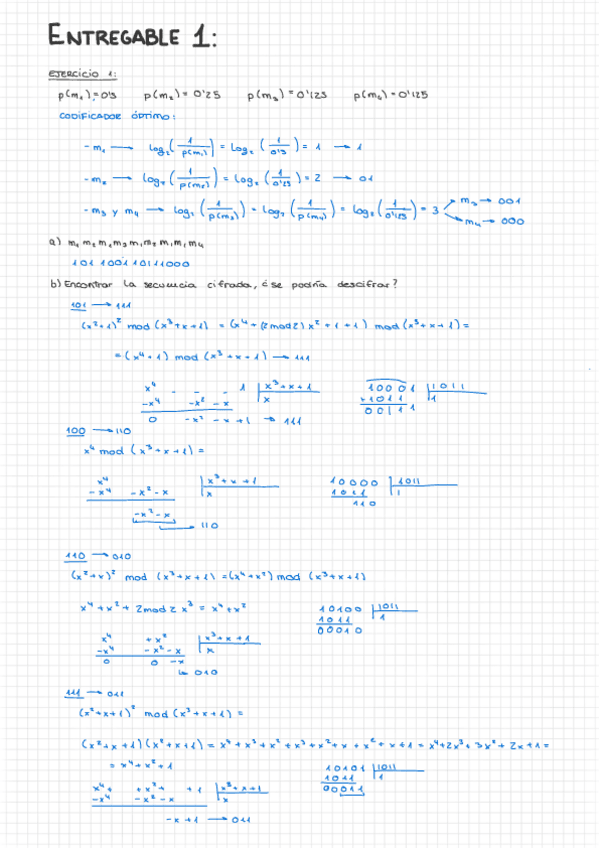 ENTREGABLE 1:
EJERCICIO 1:
p(m₁)=0'5 p(m₂)=0'25 p(m₃)=0'125 p(m₄)=0'125
CODIFICADOR ÓPTIMO:
-m₁ → log₂(1/p(m₁)) = log₂(1/0'5) = 1 → 1
-m₂ → log₂(1/p(m₂)) = log₂(1/0'25) = 2 → 01
-m₃ y m₄ → log₂(1/p(m₃)) = log₂(1/p(m₄)) = log₂(1/0'125) = 3 m₃ → 001
m₄ → 000
a) m₁ m₂ m₁ m₃ m₁ m₂ m₁ m₁ m₄
101 100110111000
b) Encontrar la secuencia cifrada, ¿se podría descifrar?
101 → 111
(x²+1)² mod (x³+x+1) = (x⁴+(2mod2)x²+1+1) mod (x³+x+1) =
= (x⁴+1) mod (x³+x+1) → 111
x⁴ - - - 1 x³+x+1 10001 1011
-x⁴ -x² -x x +1011 1
0 -x² -x +1 → 111 00111
100 → 110
x⁴ mod (x³+x+1) =
x⁴ x³+x+1 10000 1011
-x⁴ -x² -x x 1011 1
-x² -x 110
→ 110
110 → 010
(x²+x)² mod (x³+x+1) = (x⁴+x²) mod (x³+x+1)
x⁴+x²+2mod2 x³ = x⁴+x²
10100 1011
1011 1
00010
x⁴ +x² x³+x+1
-x⁴ -x² -x x
0 0 -x
→ 010
111 → 011
(x²+x+1)² mod (x³+x+1) =
(x²+x+1)(x²+x+1) = x⁴+x³+x²+x³+x²+x+x²+x+1 = x⁴+2x³+3x²+2x+1 =
= x⁴+x²+1
10101 1011
1011 1
00011
x⁴+ +x²+ +1 x³+x+1
-x⁴ -x² -x x
-x+1 → 011